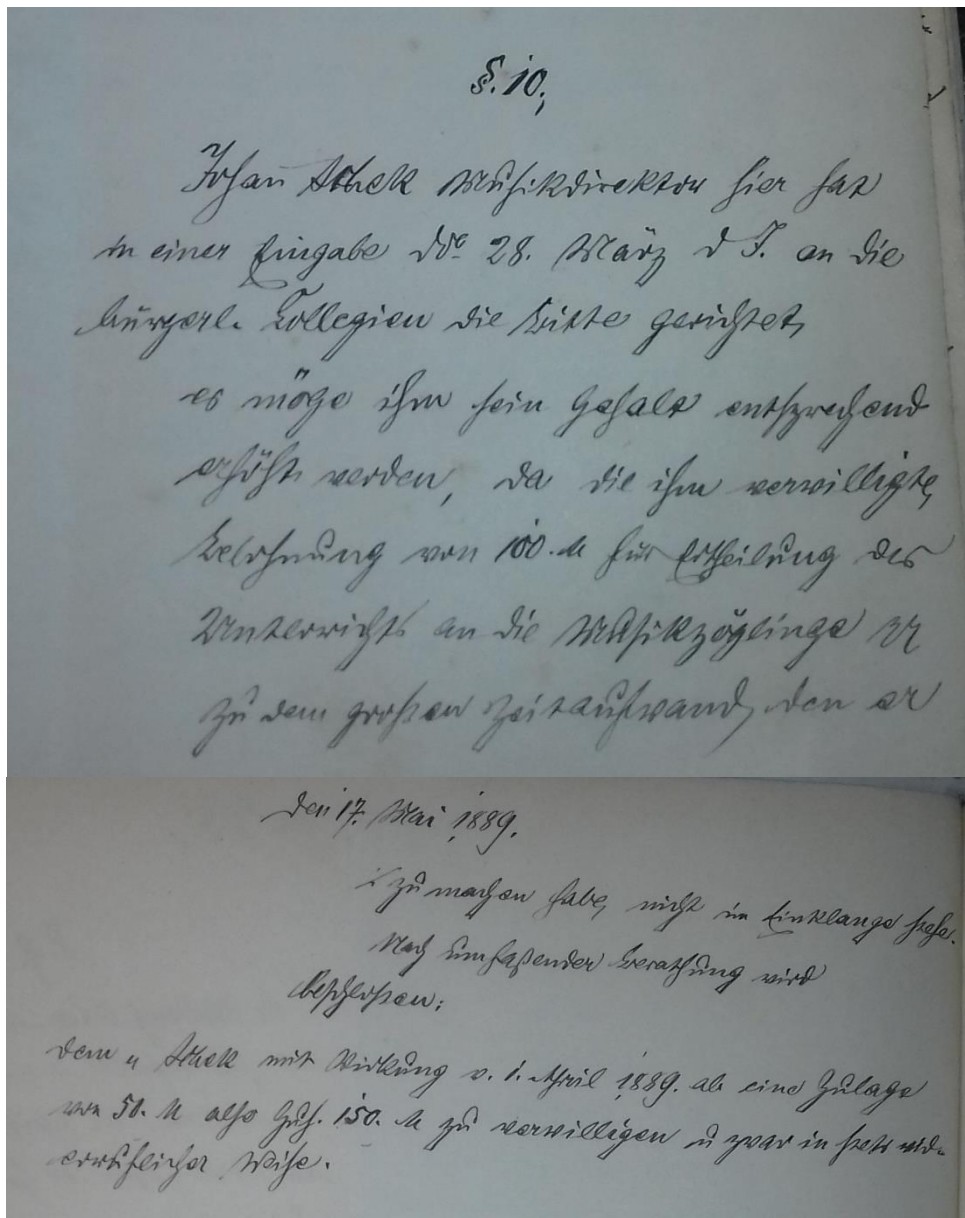 §. 10.,
Johañ Musikdirektor hier hat
in einer Eingabe ddo. 28. März d J. an die
bürgerl. Collegien die Bitte gerichtet,
es möge ihm sein Gehalt entsprechend
erhöht werden, da die ihm verwilligte
Belohnung von 100. M für Ertheilung des
Unterrichts an die Musikzöglinge
zu dem großen Zeitaufwand, den er
den 17. Mai 1889.
zu machen habe, nicht im Einklange stehe.
Nach umfaßender Berathung wird
beschloßen:
dem „ mit Wirkung v. 1. April 1889. ab eine Zulage
von 50. M also Zus. 150. M zu verwilligen u zwar in stets wid-
erruflicher Weise.